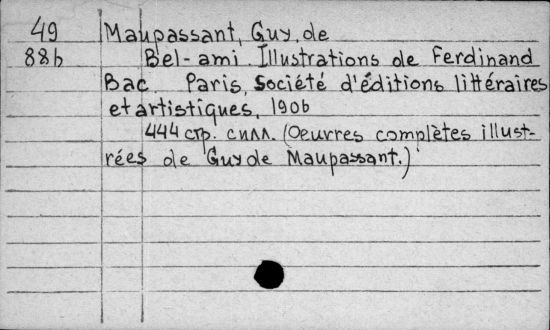 49 Maupassant, Guy, de
88b Bel-ami. Illustrations de Ferdinand
Bac. Paris, Société d'éditions littéraires
et artistiques, 1906
444 стр. с илл. (Oeuvres complètes illust-
rées de Guy de Maupassant.)